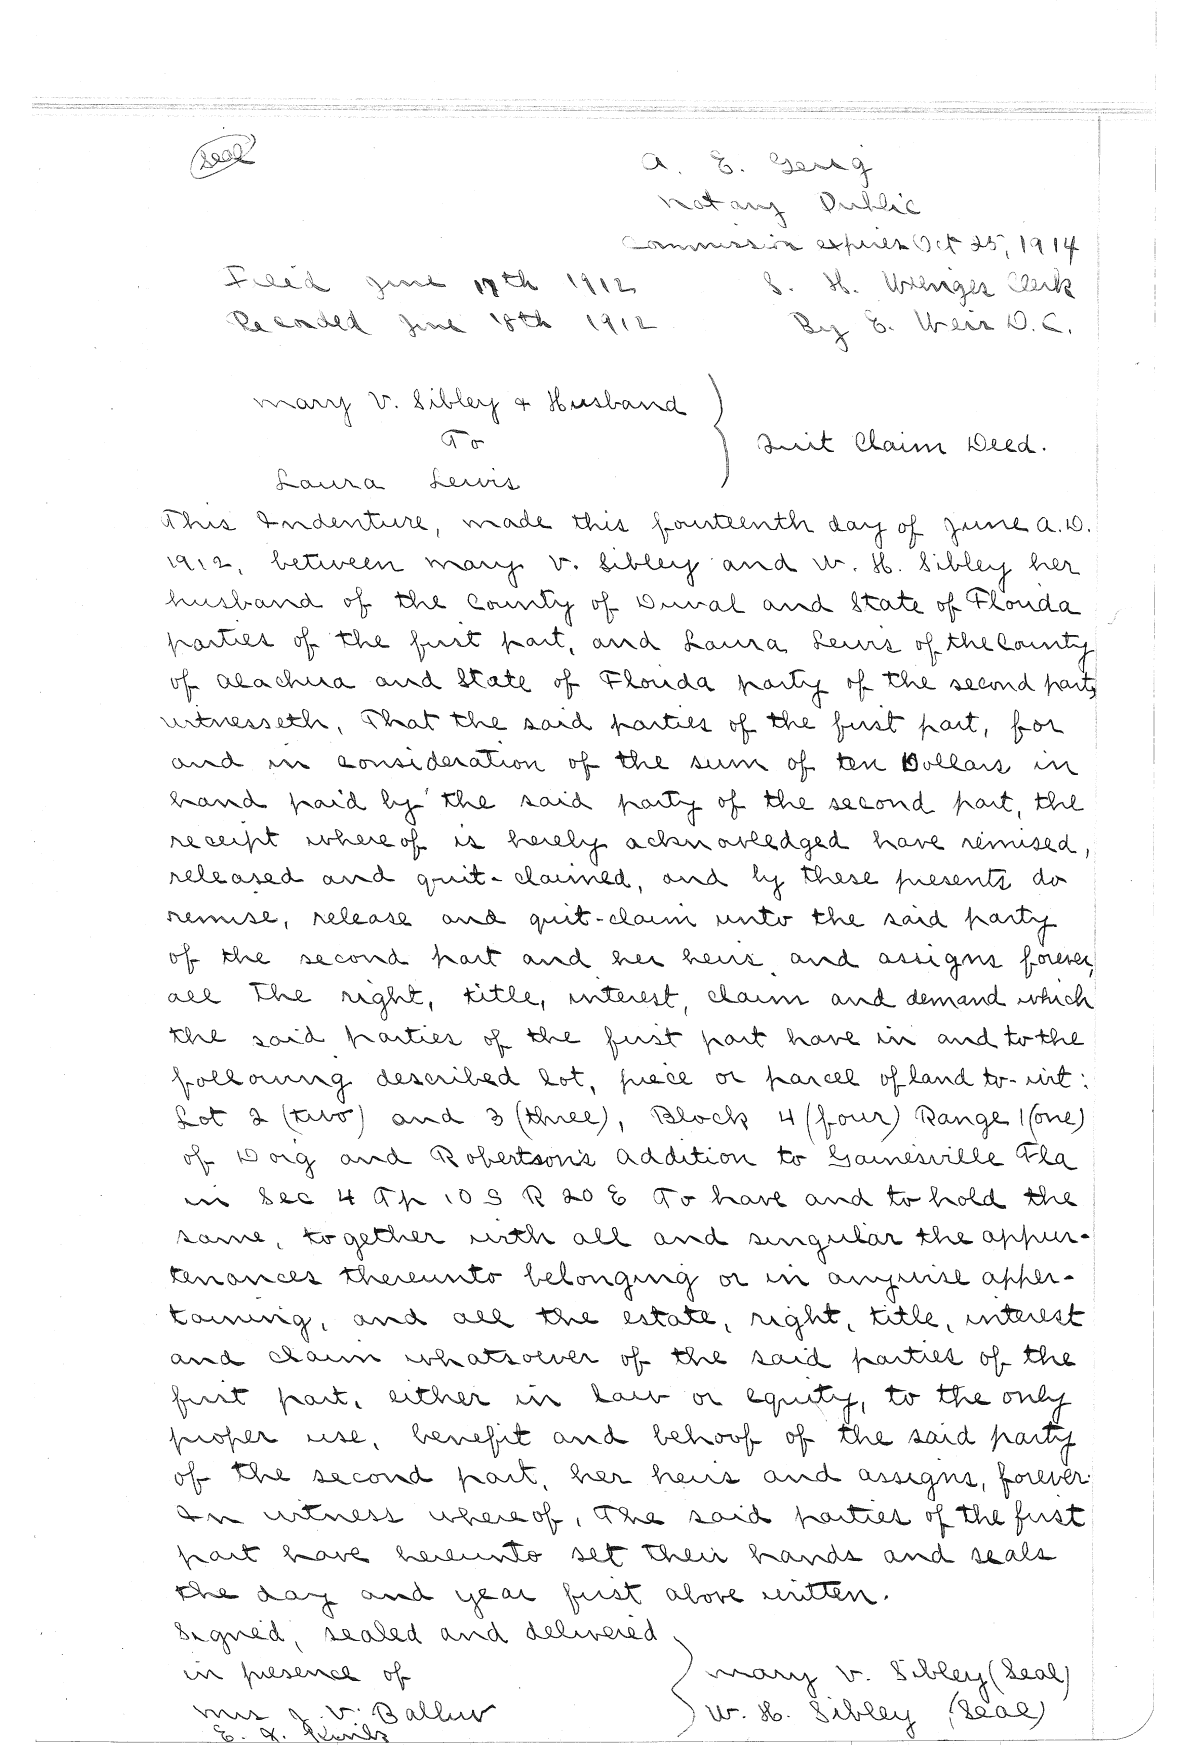 Seal
A. E. Gerig
Notary Public
Commission expires Oct 25, 1914
Filed June 17th 1912 S. H. Wienges Clerk
Recorded June 18th 1912 By E. Weir D.C.
Mary V. Sibley & Husband
To
Quit Claim Deed.
Laura Lewis
This Indenture, made this fourteenth day of June A.D.
1912, between Mary V. Sibley and W. H. Sibley her
husband of the County of Duval and State of Florida
parties of the first part, and Laura Lewis of the County
of Alachua and State of Florida party of the second part,
witnesseth, That the said parties of the first part, for
and in consideration of the sum of ten Dollars in
hand paid by the said party of the second part, the
receipt whereof is hereby acknowledged have remised,
released and quit-claimed, and by these presents do
remise, release and quit-claim unto the said party
of the second part and her heirs and assigns forever,
all the right, title, interest, claim and demand which
the said parties of the first part have in and to the
following described lot, piece or parcel of land to-wit:
Lot 2 (two) and 3 (three), Block 4 (four) Range 1 (one)
of Doig and Robertson's addition to Gainesville Fla
in Sec 4 Tp 10 S R 20 E To have and to hold the
same, together with all and singular the appur-
tenances thereunto belonging or in anywise apper-
taining, and all the estate, right, title, interest
and claim whatsoever of the said parties of the
first part, either in law or equity, to the only
proper use, benefit and behoof of the said party
of the second part, her heirs and assigns, forever.
In witness whereof, The said parties of the first
part have hereunto set their hands and seals
the day and year first above written.
Signed, sealed and delivered
in presence of Mary V. Sibley (Seal)
Mrs J. V. Ballew W. H. Sibley (Seal)
E. X.